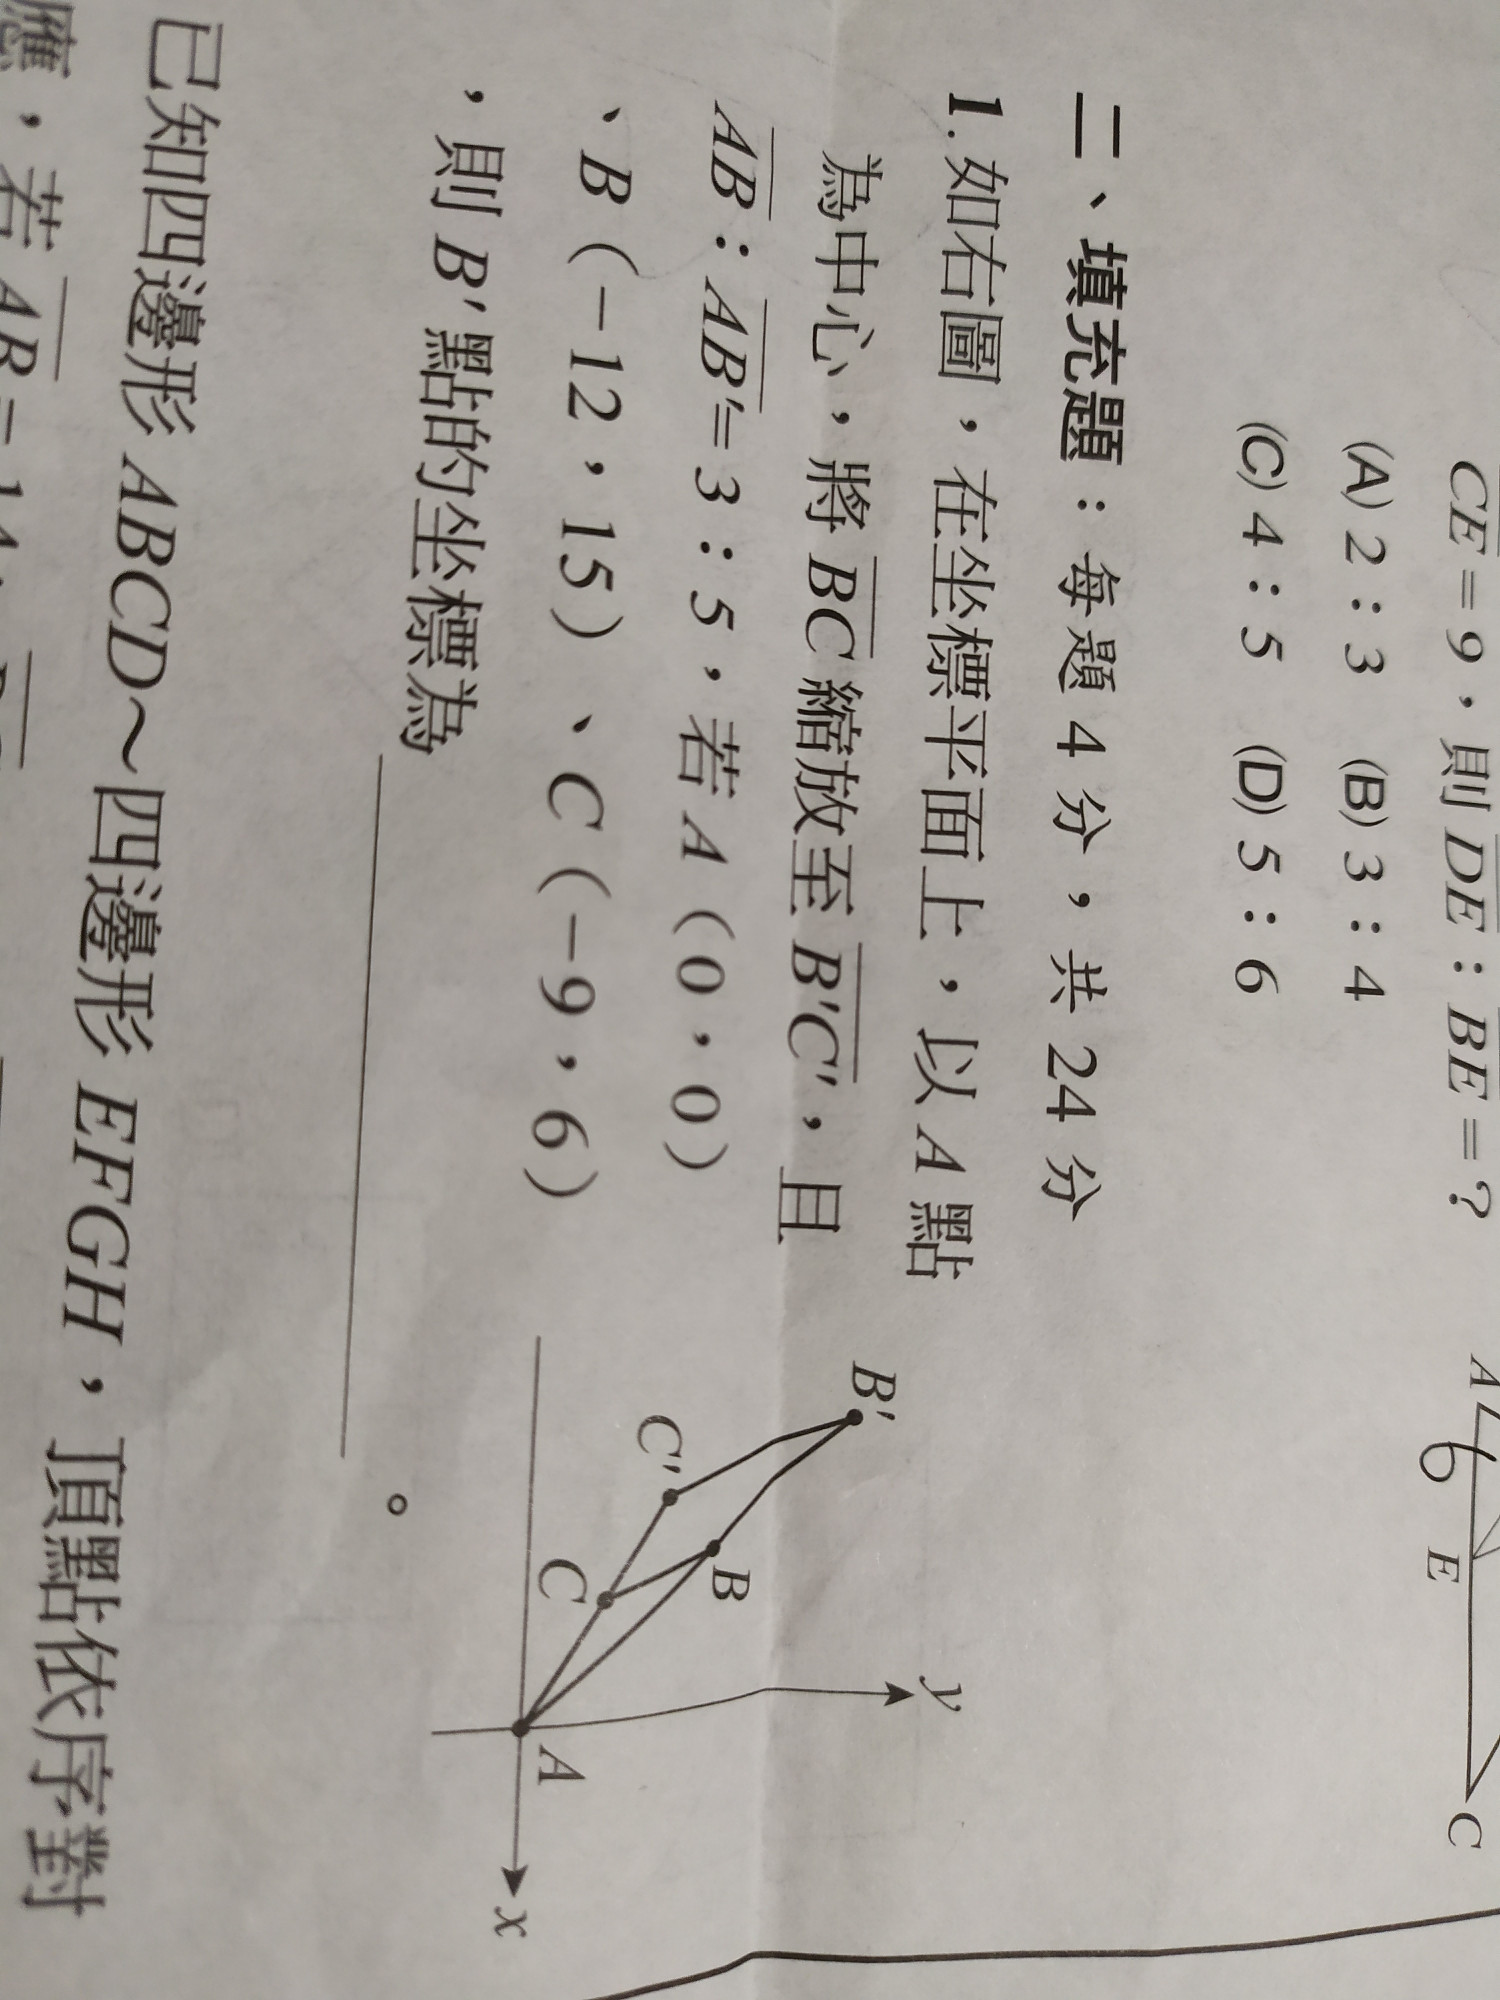 CE = 9，則 DE：BE = ？
(A) 2：3 (B) 3：4
(C) 4：5 (D) 5：6
A
6
E
C
二、填充題：每題 4 分，共 24 分
1. 如右圖，在坐標平面上，以 A 點
為中心，將 BC 縮放至 B'C'，且
AB：AB'= 3：5，若 A（0，0）
、B（-12，15）、C（-9，6）
，則 B' 點的坐標為＿＿＿＿＿＿。
B'
y
B
C'
C
A
x
已知四邊形 ABCD～四邊形 EFGH，頂點依序對
應，若 AB = 14